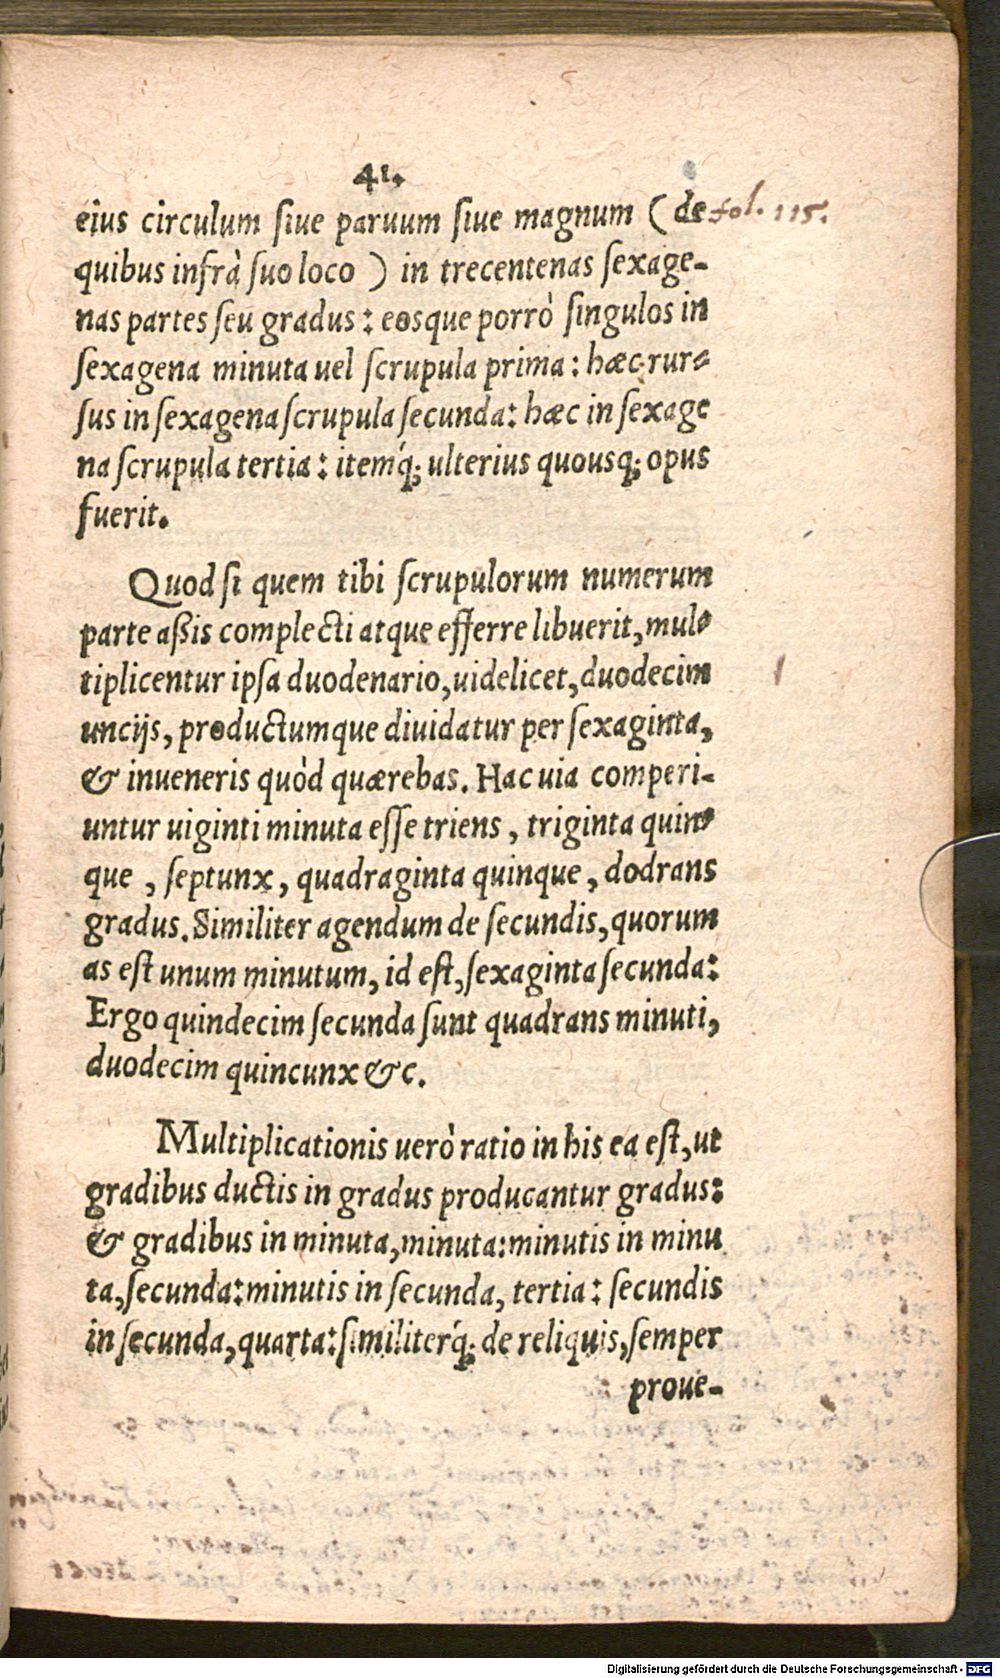 41.
eius circulum ſiue paruum ſiue magnum ( de fol. 115.
quibus infrà ſuo loco ) in trecentenas ſexage-
nas partes ſeu gradus : eosque porrò ſingulos in
ſexagena minuta uel ſcrupula prima : hæc rur-
ſus in ſexagena ſcrupula ſecunda: hæc in ſexage
na ſcrupula tertia : itemq́; ulterius quousq; opus
fuerit.
Quod ſi quem tibi ſcrupulorum numerum
parte aßis complecti atque efferre libuerit, mul-
tiplicentur ipſa duodenario, uidelicet, duodecim
uncijs, productumque diuidatur per ſexaginta,
& inueneris quòd quærebas. Hac uia comperi-
untur uiginti minuta eſſe triens, triginta quin-
que, ſeptunx, quadraginta quinque, dodrans
gradus. Similiter agendum de ſecundis, quorum
as eſt unum minutum, id eſt, ſexaginta ſecunda:
Ergo quindecim ſecunda ſunt quadrans minuti,
duodecim quincunx &c.
Multiplicationis uerò ratio in his ea eſt, ut
gradibus ductis in gradus producantur gradus:
& gradibus in minuta, minuta: minutis in minu
ta, ſecunda: minutis in ſecunda, tertia : ſecundis
in ſecunda, quarta: ſimiliterq́; de reliquis, ſemper
proue-
Digitalisierung gefördert durch die Deutsche Forschungsgemeinschaft - DFG